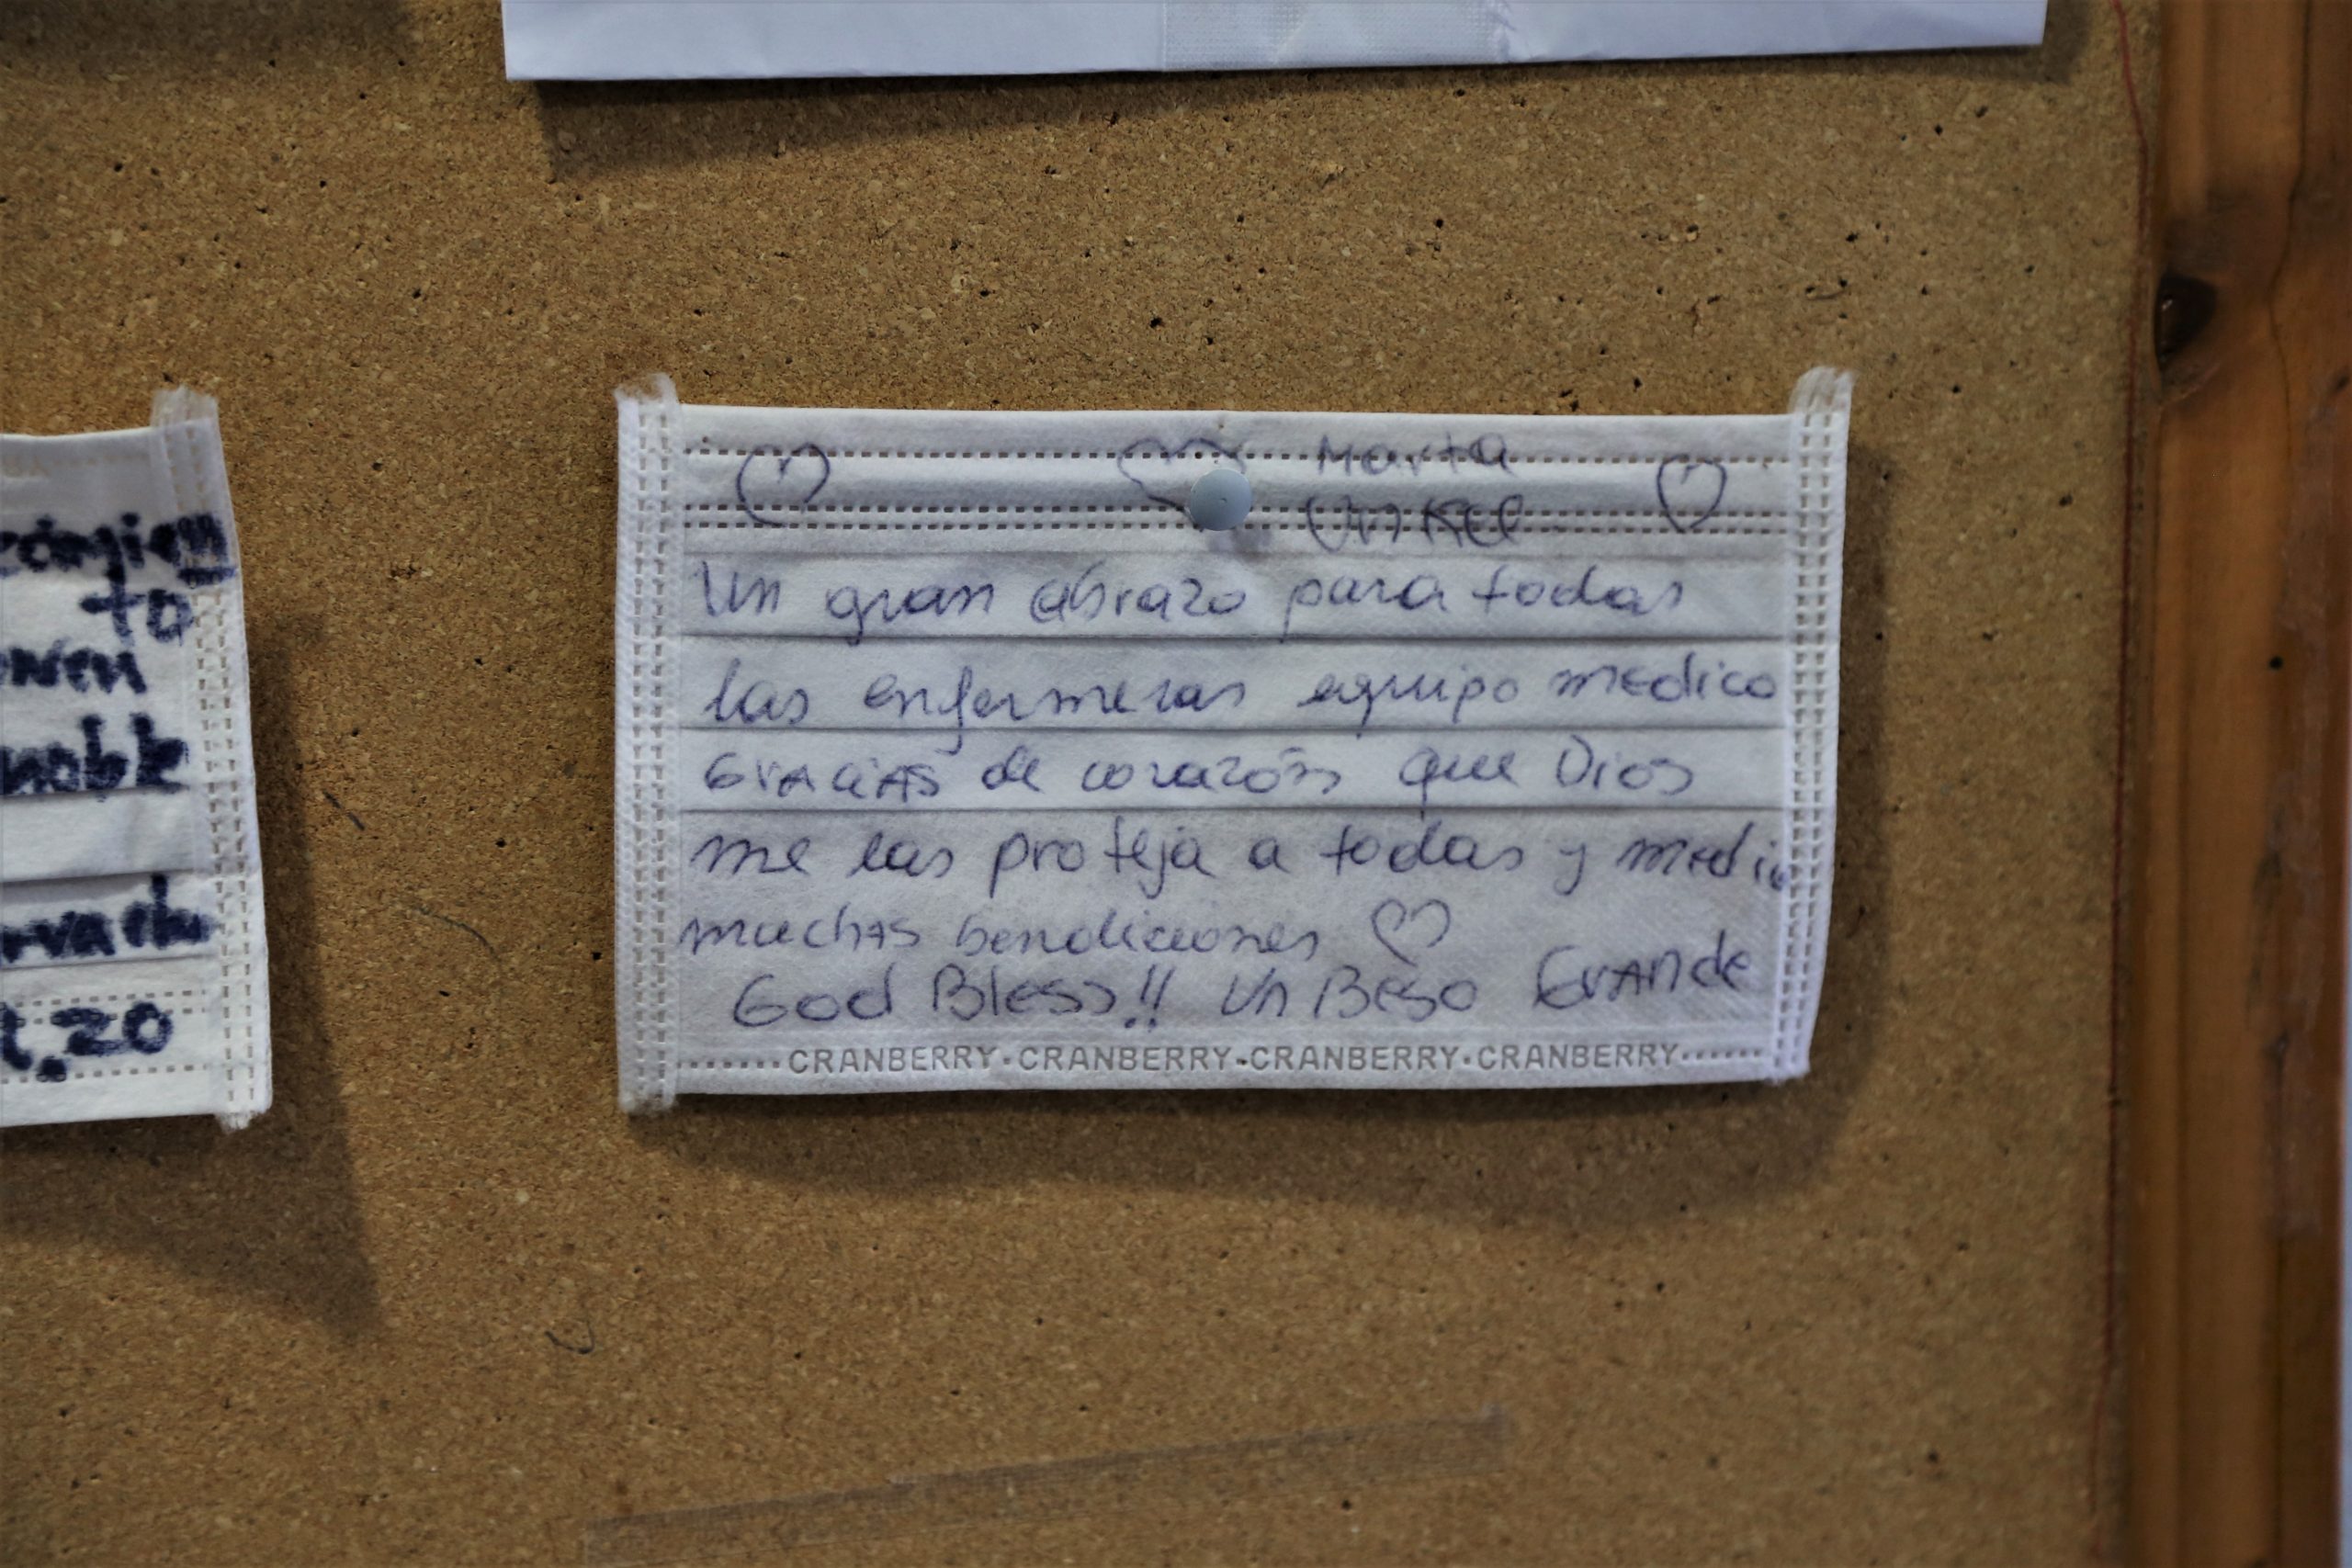 to
noble
t.20
Marta
Un gran abrazo para todas
las enfermeras equipo medico
GrACiAS de corazón que Dios
me las proteja a todas y medic
muchas bendiciones
God Bless!! Un Beso GrANde
CRANBERRY·CRANBERRY·CRANBERRY·CRANBERRY